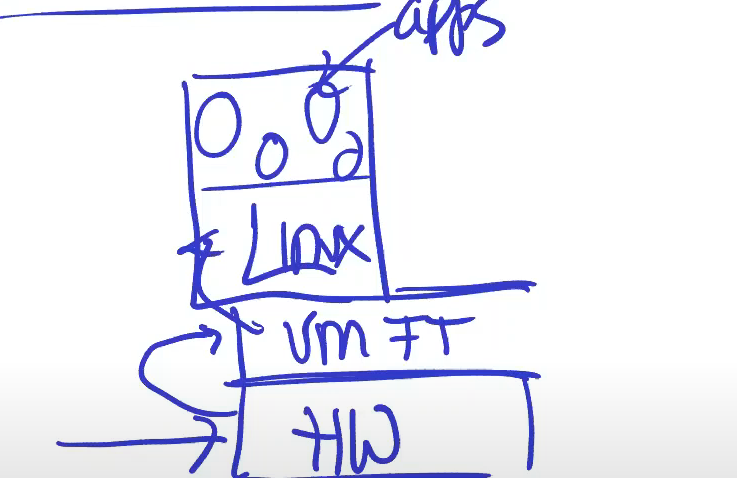 apps
Linux
VM FT
HW